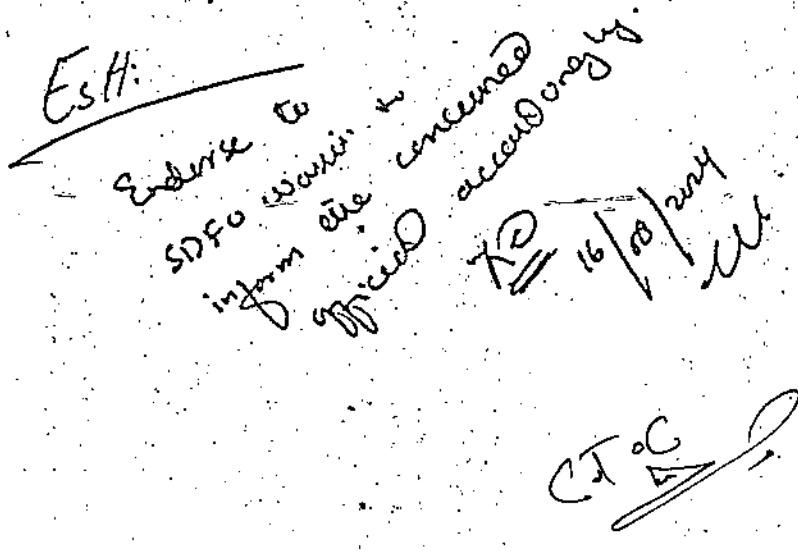 Estt:
Endorse to
SDFO to
inform the concerned
official accordingly.
16/08/2024